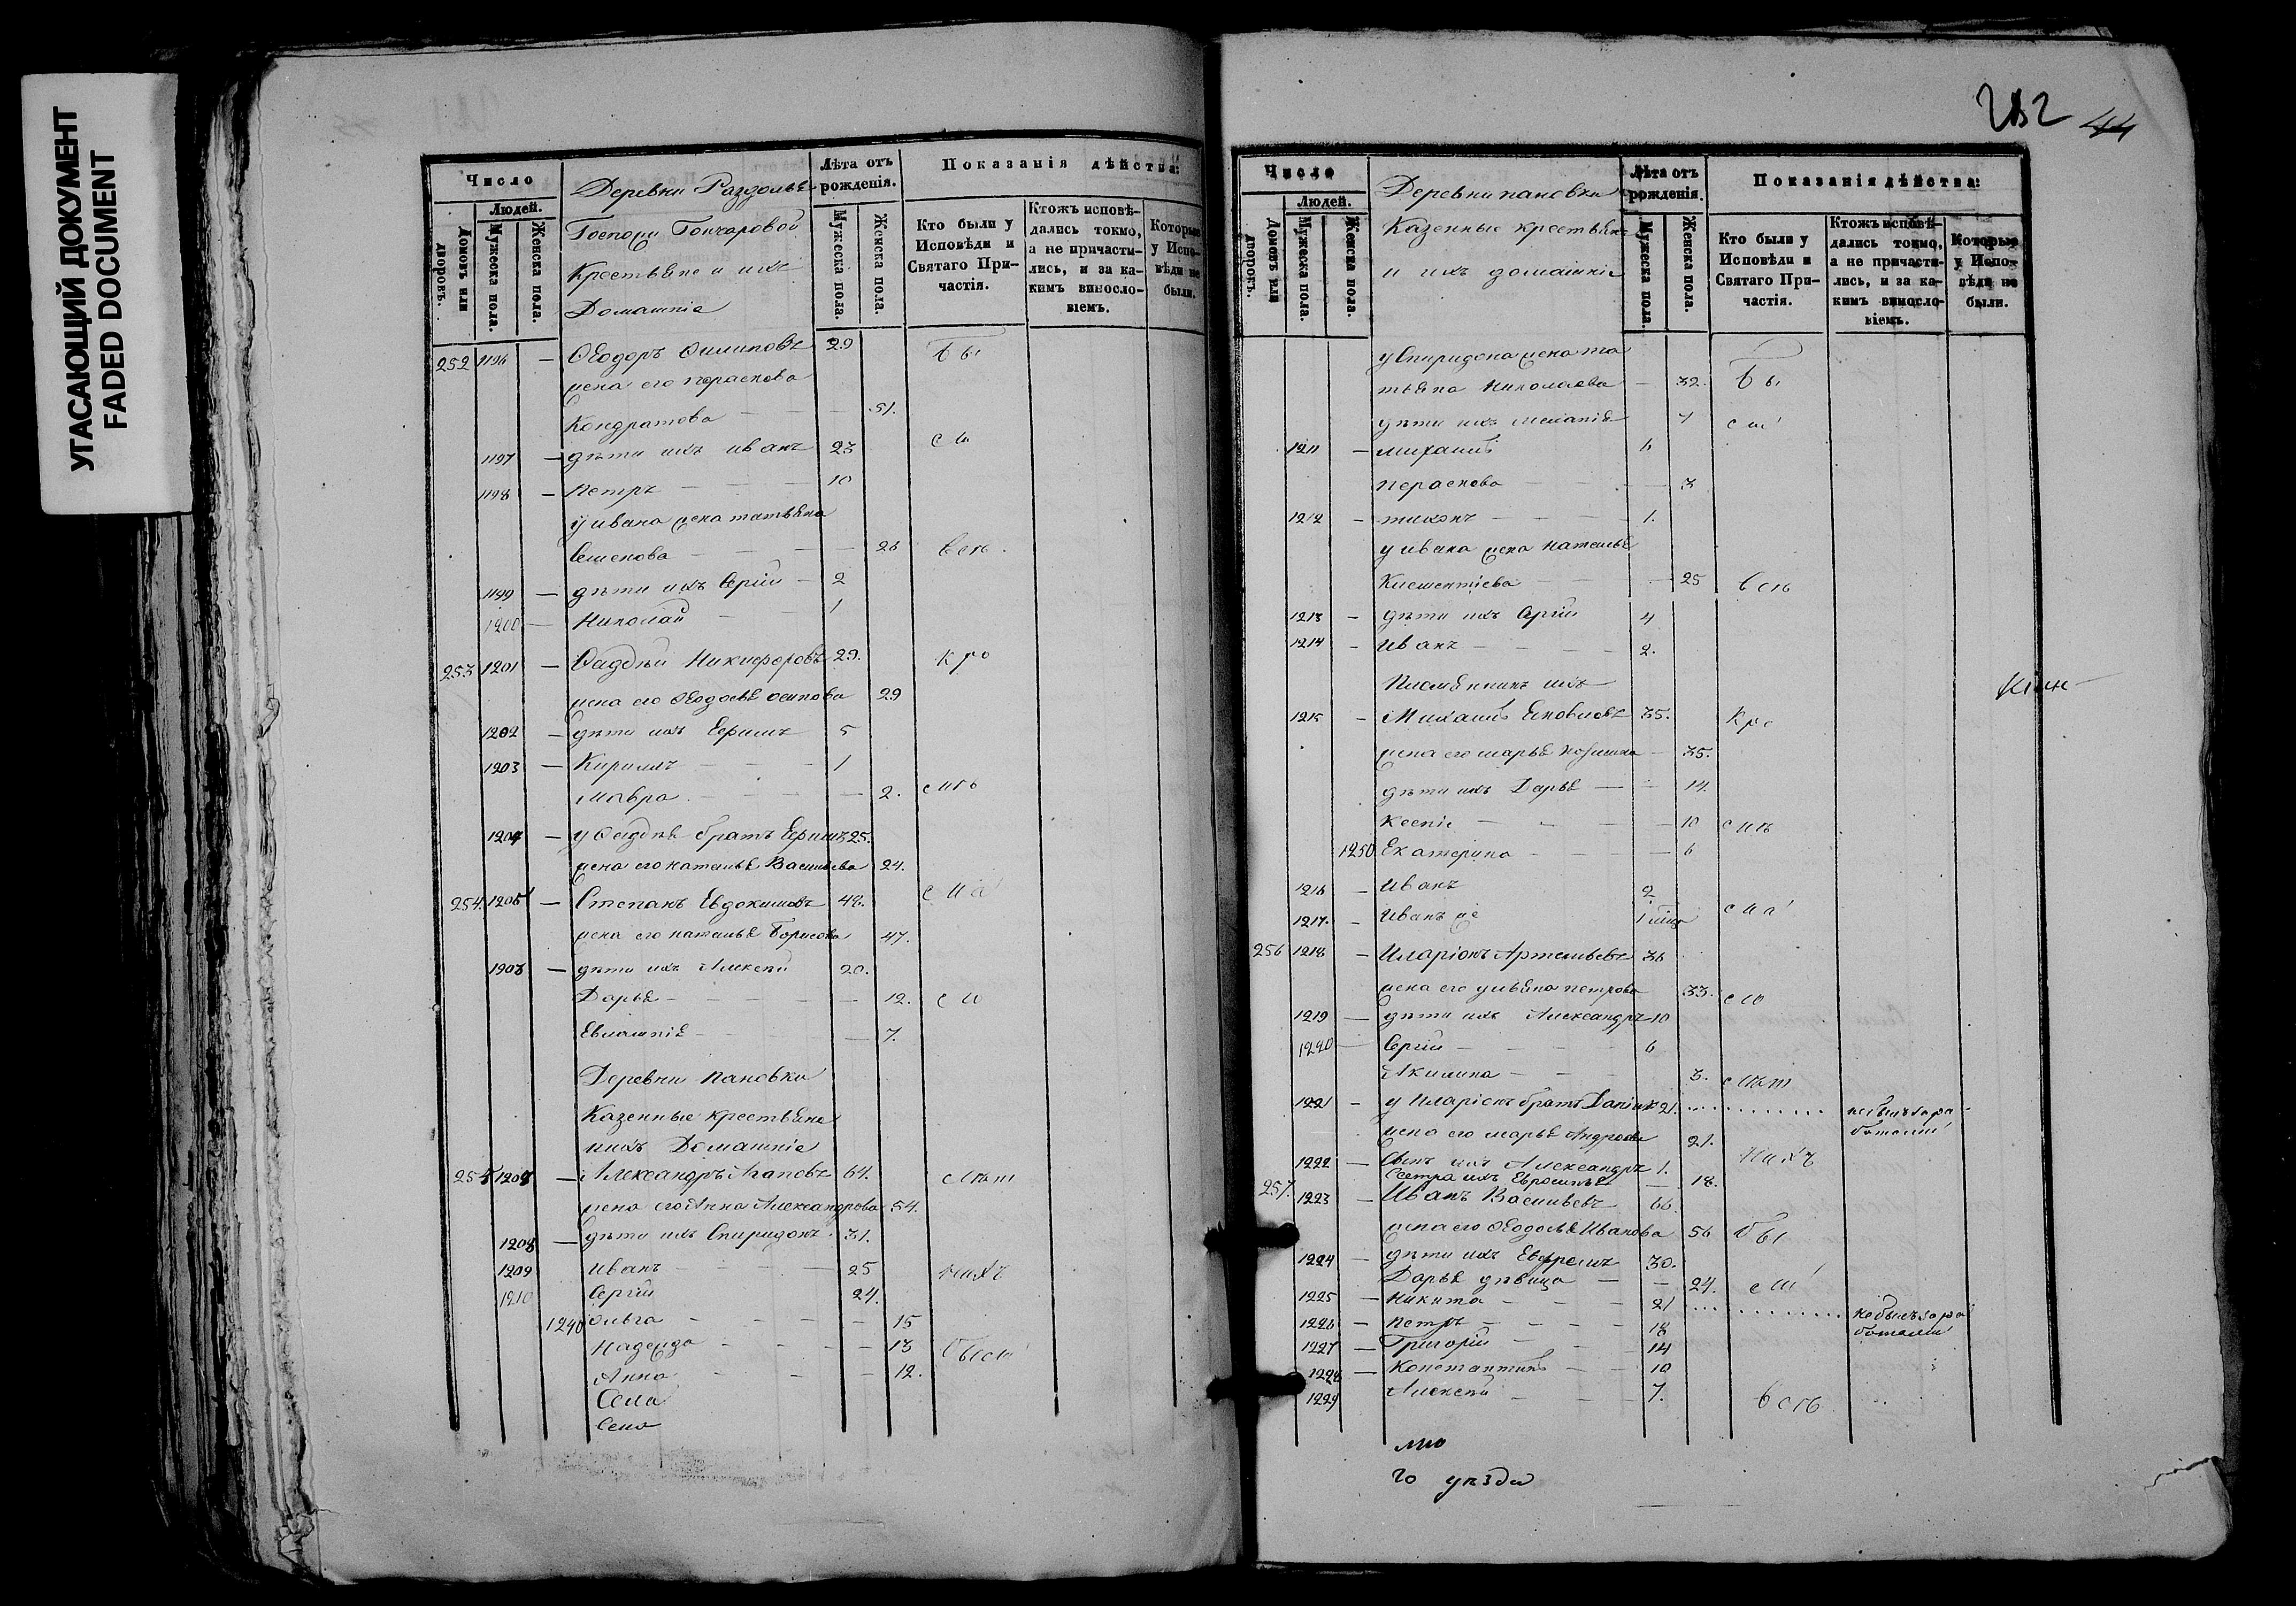 УГАСАЮЩИЙ ДОКУМЕНТ
FADED DOCUMENT
Число
Людей.
Домовъ или дворовъ.
Мужеска пола.
Женска пола.
Деревни Раздолье
Госпожи Гончаровой
Крестьяне и ихъ
Домашніе
Лѣта отъ рожденія.
Мужеска пола.
Женска пола.
Показанія дѣйства:
Кто были у Исповѣди и Святаго Причастія.
Ктожъ исповѣдались токмо, а не причастились, и за какимъ винословіемъ.
Которые у Исповѣди не были.
252 1196 — Ѳеодоръ Филиповъ 29 бы
жена его пораскова
Кондратова — — 51.
1197 — дѣти ихъ иванъ 23
1198 — Петръ — — — 10
у ивана жена татьяна
Семенова — — — — 26
1199 — дѣти ихъ Сергій — 2
1200 — Николай — — 1
253 1201 — Фаддѣй Никифоровъ 29. кро
жена его Ѳеодосья осипова 29
1202 — дѣти ихъ Ефимъ 5
1203 — Кириллъ — — — 1
Мавра — — — — 2.
1204 — у Фаддѣя братъ Ефимъ 25.
жена его наталья Васильева 24.
254. 1205 — Степанъ Евдокимовъ 48.
жена его наталья Борисова 47.
1206 — дѣти ихъ Алексѣй 20.
Дарья — — — — 12.
Евлампія — — — 7.
Деревни Пановки
Казенные крестьяне
и ихъ Домашніе
255 1207 — Александръ Агаповъ 64.
жена его Анна Александрова 54.
1208 — дѣти ихъ Спиридонъ 31.
1209 Иванъ — — — — 25
1210 Сергій 24.
1240 Ольга — — — — 15
Надежда — — — 13
Анна — — — 12.
Села
Села
44
Число
Людей.
Домовъ или дворовъ.
Мужеска пола.
Женска пола.
Деревни пановки
Казенные крестьяне
и ихъ домашніе
Лѣта отъ рожденія.
Мужеска пола.
Женска пола.
Показанія дѣйства:
Кто были у Исповѣди и Святаго Причастія.
Ктожъ исповѣдались токмо, а не причастились, и за какимъ винословіемъ.
Которые у Исповѣди не были.
у Спиридона жена та
тьяна Николаева — 32. бы
дѣти ихъ меланія 7
1211 — михаилъ 6
пераскова — — — 3
1212 — тихонъ — — — 1.
у ивана жена наталья
Климентіева — — 25
1213 — дѣти ихъ Сергій 4
1214 — Иванъ — — — 2.
Племянникъ ихъ
1215 — Михаилъ Яковлевъ 35. кро
жена его марья козмина — 35.
дѣти ихъ Дарья — — 14.
Ксенія — — — 10
1250 Екатерина — — — 6
1216 — Иванъ 2
1217. — Иванъ же
256 1218 — Иларіонъ Артемьевъ 36
жена его ульяна петрова 33.
1219 — дѣти ихъ Александръ 10
1220 — Сергій — — — 6
Акилина — — — 3.
1221 — у Иларіона братъ Даніилъ 21. не былъ за ра
ботами
жена его марья Андреева 21.
1222 — Сынъ ихъ Александръ 1.
Сестра ихъ Евросинья — 18.
257. 1223 — Иванъ Васильевъ 66.
жена его Ѳеодосья Иванова 56 бы
1224 — дѣти ихъ Евфремъ 30.
Дарья дѣвица — — 24.
1225 — Никита — — — 21 не былъ за ра
ботами
1226 — Петръ — — — 18
1227 — Григорій — — 14
1228 — Константинъ — — 10
1229 Алексѣй — — — 7.
го уѣзда